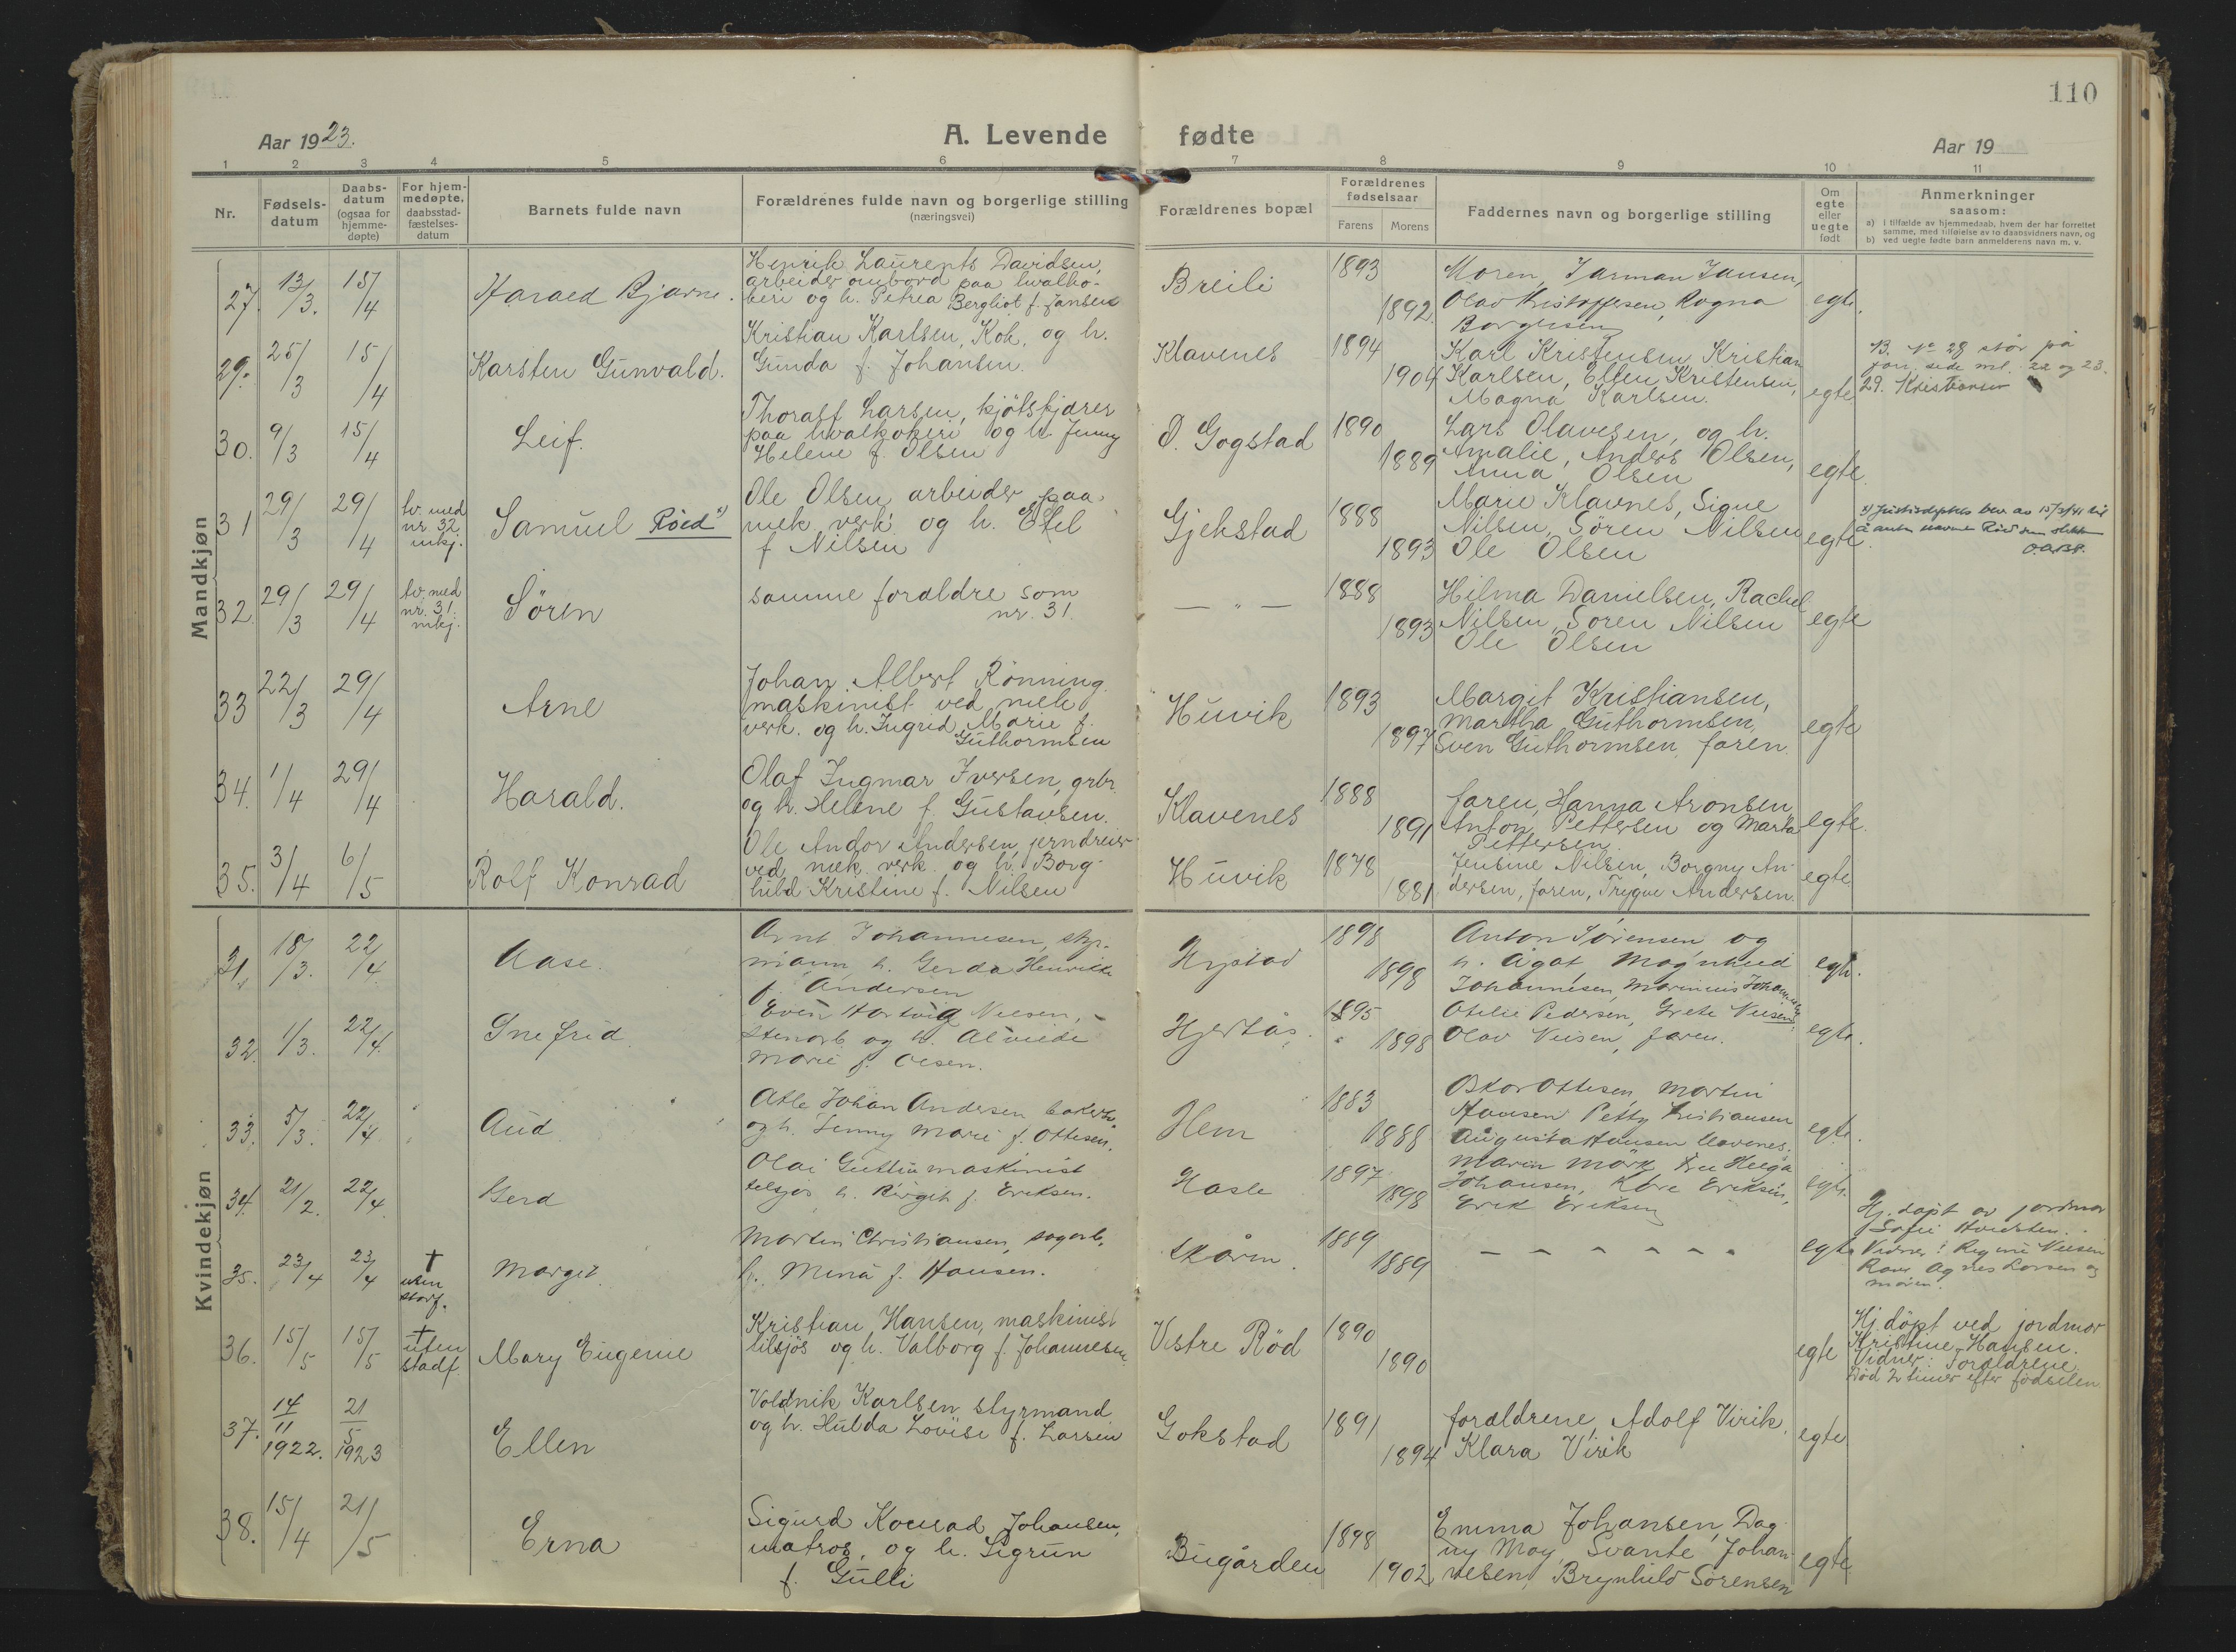 110
Aar 1923.
A. Levende fødte
Aar 19
1 2 3 4 5 6 7 8 9 10 11
Nr.
Fødsels-
datum
Daabs-
datum
(ogsaa for
hjemme-
døpte)
For hjem-
medøpte,
daabsstad-
fæstelses-
datum
Barnets fulde navn
Forældrenes fulde navn og borgerlige stilling
(næringsvei)
Forældrenes bopæl
Forældrenes
fødselsaar
Farens Morens
Faddernes navn og borgerlige stilling
Om
egte
eller
uegte
født
Anmerkninger
saasom:
a) i tilfælde av hjemmedaab, hvem der har forrettet
samme, med tilføielse av to daabsvidners navn, og
b) ved uegte fødte barn anmelderens navn m. v.
Mandkjøn
27. 13/3. 15/4
Harald Bjarne.
Henrik Laurents Davidsen,
arbeider ombord paa hvalko-
keri og h. Petrea Bergliot f. Jansen
Breili
1893
1892.
Moren, Jarman Jansen,
Olav Kristoffersen, Ragna
egte.
29. 25/3 15/4
Karsten Gunvald.
Kristian Karlsen, Kok, og h.
Gunda f. Johansen.
Klavenes
1894
1904
Karl Kristensen, Kristian
Karlsen, Ellen Kristensen,
Magna Karlsen.
egte
B. No 28 står på
forr. side ml. 22 og 23.
29. Kristiansen
30. 9/3 15/4
Leif.
Thoralf Larsen, kjøtskjærer
paa hvalkokeri og h. Jenny
Helene f. Olsen
Ø. Gogstad
1890
1889
Lars Olavesen, og h.
Amalie, Anders Olsen,
Anna Olsen
egte.
31 29/3 29/4
tv. med
nr. 32
mkj.
Samuel Röed x)
Ole Olsen arbeider paa
mek. verk og h. Etel
f Nilsen
Gjekstad
1888
1893
Marie Klavnes, Signe
Nilsen, Søren Nilsen
Ole Olsen
egte.
x) Justisdeptets bev. av 15/3/41 til
å anta navnet Röed som slekts
32. 29/3 29/4
tv. med
nr. 31.
mkj.
Sören
samme foraldre som
nr. 31.
— „ —
1888
1893
Hilma Danielsen, Rachel
Nilsen, Søren Nilsen
Ole Olsen
egte
33 22/3 29/4
Arne
Johan Albert Rønning
maskinist ved mek
verk. og h. Ingrid Marie f.
Guthormsen
Huvik
1893
1897
Margit Kristiansen,
Martha Guthormsen,
Sven Guthormsen, faren.
egte
34. 1/4 29/4
Harald.
Olaf Ingmar Iversen, grbr.
og h. Helene f. Gustavsen.
Klavenes
1888
1891
faren, Hanna Aronsen
Anton Pettersen og Marta
Pettersen.
egte.
35. 3/4 6/5
Rolf Konrad
Ole Andor Andersen jerndreier
ved mek. verk. og h. Borg-
hild Kristine f. Nilsen
Huvik
1878
1881
Jensine Nilsen, Borgny An-
dersen, faren, Trygve Andersen.
egte.
Kvindekjøn
31. 18/3. 22/4
Aase.
Arnt Johannesen, styr-
mann, h. Gerda Henrikke
f. Andersen
Nystad
1898
1898
Anton Sørensen og
h. Agat, Magnhild
Johannesen, Marinius Johannesen
egte.
32. 1/3. 22/4.
Snefrid
Even Hartvig Nielsen,
stenarb. og h. Alvilde
Marie f. Olsen.
Hjertås.
1895
1898
Otelie Pedersen, Grete Nilsen,
Olav Nilsen, faren.
egte.
33. 5/3. 22/4
Aud
Atle Johan Andersen bakerh.
og h. Jenny Marie f. Ottesen.
Hem
1883
1888
Oskar Ottesen, Martin
Hansen Petty Kristiansen
Augusta Hansen Klavenes.
egte.
34. 21/2. 22/4
Gerd
Olai Guttu maskinist
tilsjøs h. Birgit f. Eriksen.
Hasle
1897
1898
Maren Mørk, Fru Helga
Johansen, Kåre Eriksen,
Erik Eriksen
egte.
35. 23/4 23/4
†
uten
stadf.
Margit.
Martin Christiansen, sagarb.
h. Mina f. Hansen.
Skårn.
1889
1889
egte
Hj. døpt av jordmor
Sofie
Vidner:
Agnes Larsen og
moren.
36. 15/5 15/5
†
uten
stadf.
Mary Eugenie
Kristian Hansen, maskinist
tilsjös og h. Valborg f. Johannesen.
Vestre Röd
1890
1890
egte
Hj. döpt ved jordmor
Kristine Hansen.
Vidner: Foraldrene.
Död 2 timer efter födselen.
37. 14/11 1922. 21/5 1923
Ellen
Voldnik Karlsen styrmand
og h. Hulda Lovise f. Larsen
Gokstad
1891
1894
foraldrene, Adolf Virik,
Klara Virik
egte
38. 15/4 21/5
Erna
Sigurd Konrad Johansen,
matros, og h. Sigrun
f. Gulli
Bugården
1898
1902
Emma Johansen, Dag-
ny Moy, Svante Johan-
nesen, Brynhild Sørensen
egte